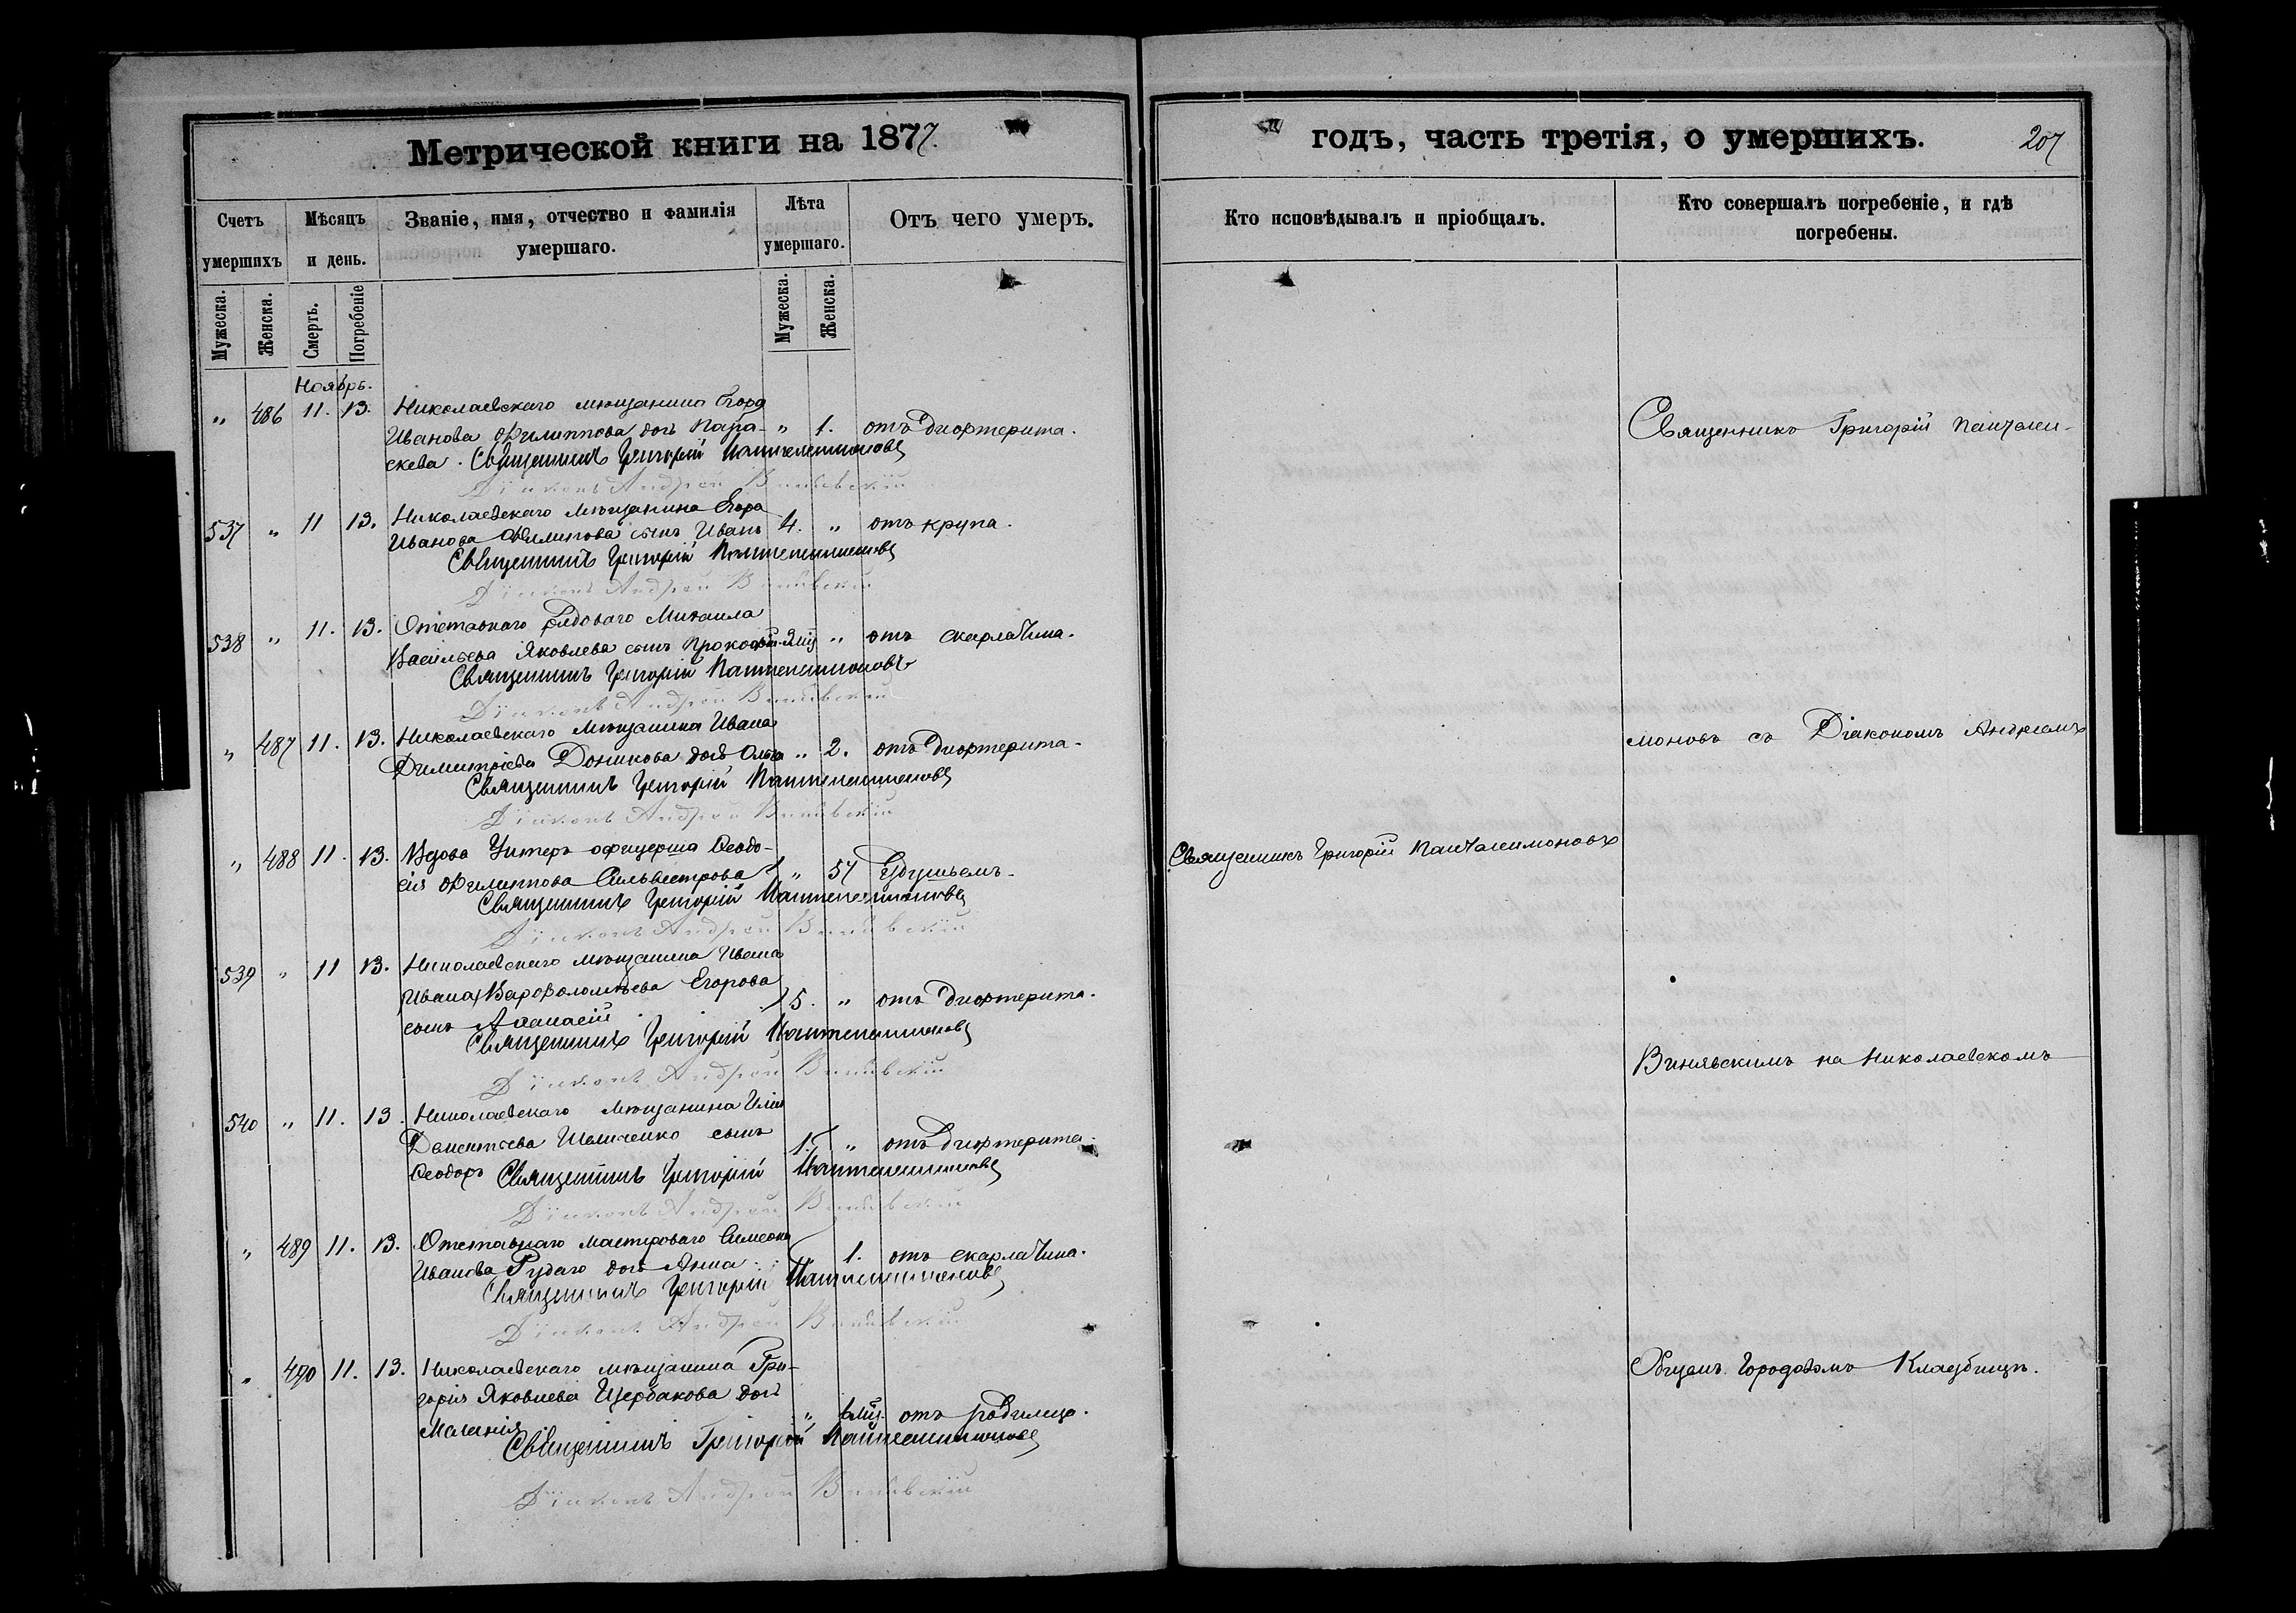 Метрической книги на 1877.
годъ, часть третія, о умершихъ.
207
Счетъ умершихъ
Мѣсяцъ и день.
Званіе, имя, отчество и фамилія умершаго.
Лѣта умершаго.
Отъ чего умеръ.
Кто исповѣдывалъ и пріобщалъ.
Кто совершалъ погребеніе, и гдѣ погребены.
Мужеска.
Женска.
Смерть.
Погребеніе
Мужеска.
Женска.
Ноябрь.
" 486 11. 13. Николаевскаго мѣщанина Егора
Иванова Филиппова дочь Пара- " 1. отъ дифтерита.
скева. Священникъ Григорій Пантелеимоновъ
Діаконъ Андрей Винявскій
537 " 11 13. Николаевскаго мѣщанина Егора
Иванова Филипова сынъ Иванъ 4. " отъ крупа.
Священникъ Григорій Пантелеимоновъ
Діаконъ Андрей Винявскій
538 " 11. 13. Отставнаго рядоваго Михаила
Васильева Яковлева сынъ Прокофій " отъ скарлатина.
Священникъ Григорій Пантелеимоновъ
Діаконъ Андрей Винявскій
" 487 11. 13. Николаевскаго мѣщанина Ивана
Димитріева Доникова дочь Ольга " 2. отъ дифтерита.
Священникъ Григорій Пантелеимоновъ
Діаконъ Андрей Винявскій
" 488 11. 13. Вдова Унтеръ офицерша Ѳеодо-
сія Филиппова Сильвестрова " 57 Удушьемъ.
Священникъ Григорій Пантелеимоновъ
Діаконъ Андрей Винявскій
539 " 11 13. Николаевскаго мѣщанина Ивана
Ивана Варѳоломѣева Егорова
сынъ Аѳанасій 5. " отъ дифтерита.
Священникъ Григорій Пантелеимоновъ
Діаконъ Андрей Винявскій
540 " 11. 13. Николаевскаго мѣщанина Иліи
Дементьева сынъ
Ѳеодоръ 1. " отъ дифтерита.
Священникъ Григорій Пантелеимоновъ
Діаконъ Андрей Винявскій
" 489 11. 13. Отставнаго мастероваго Симеона
Иванова Рудаго дочь Анна. 1. отъ скарлатина.
Священникъ Григорій Пантелеимоновъ
Діаконъ Андрей Винявскій
" 490 11. 13. Николаевскаго мѣщанина Гри-
горія Яковлева Щербакова дочь
Маланія " отъ родимца.
Священникъ Григорій Пантелеимоновъ
Діаконъ Андрей Винявскій
Священникъ Григорій Пантелеимоновъ
Священникъ Григорій Пантелеи-
моновъ съ Діакономъ Андреемъ
Винявскимъ на Николаевскомъ
Общемъ Городскомъ Кладбищѣ.